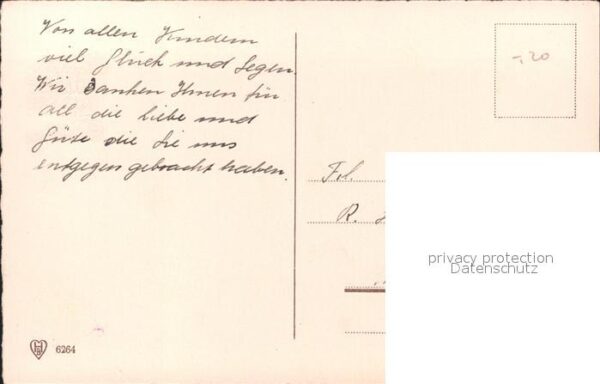 Von allen Kindern
viel Glück und Segen.
Wir Danken Ihnen für
all die Liebe und
Güte die Sie uns
entgegen gebracht haben.
-,20
Frl.
R.
privacy protection
Datenschutz
6264